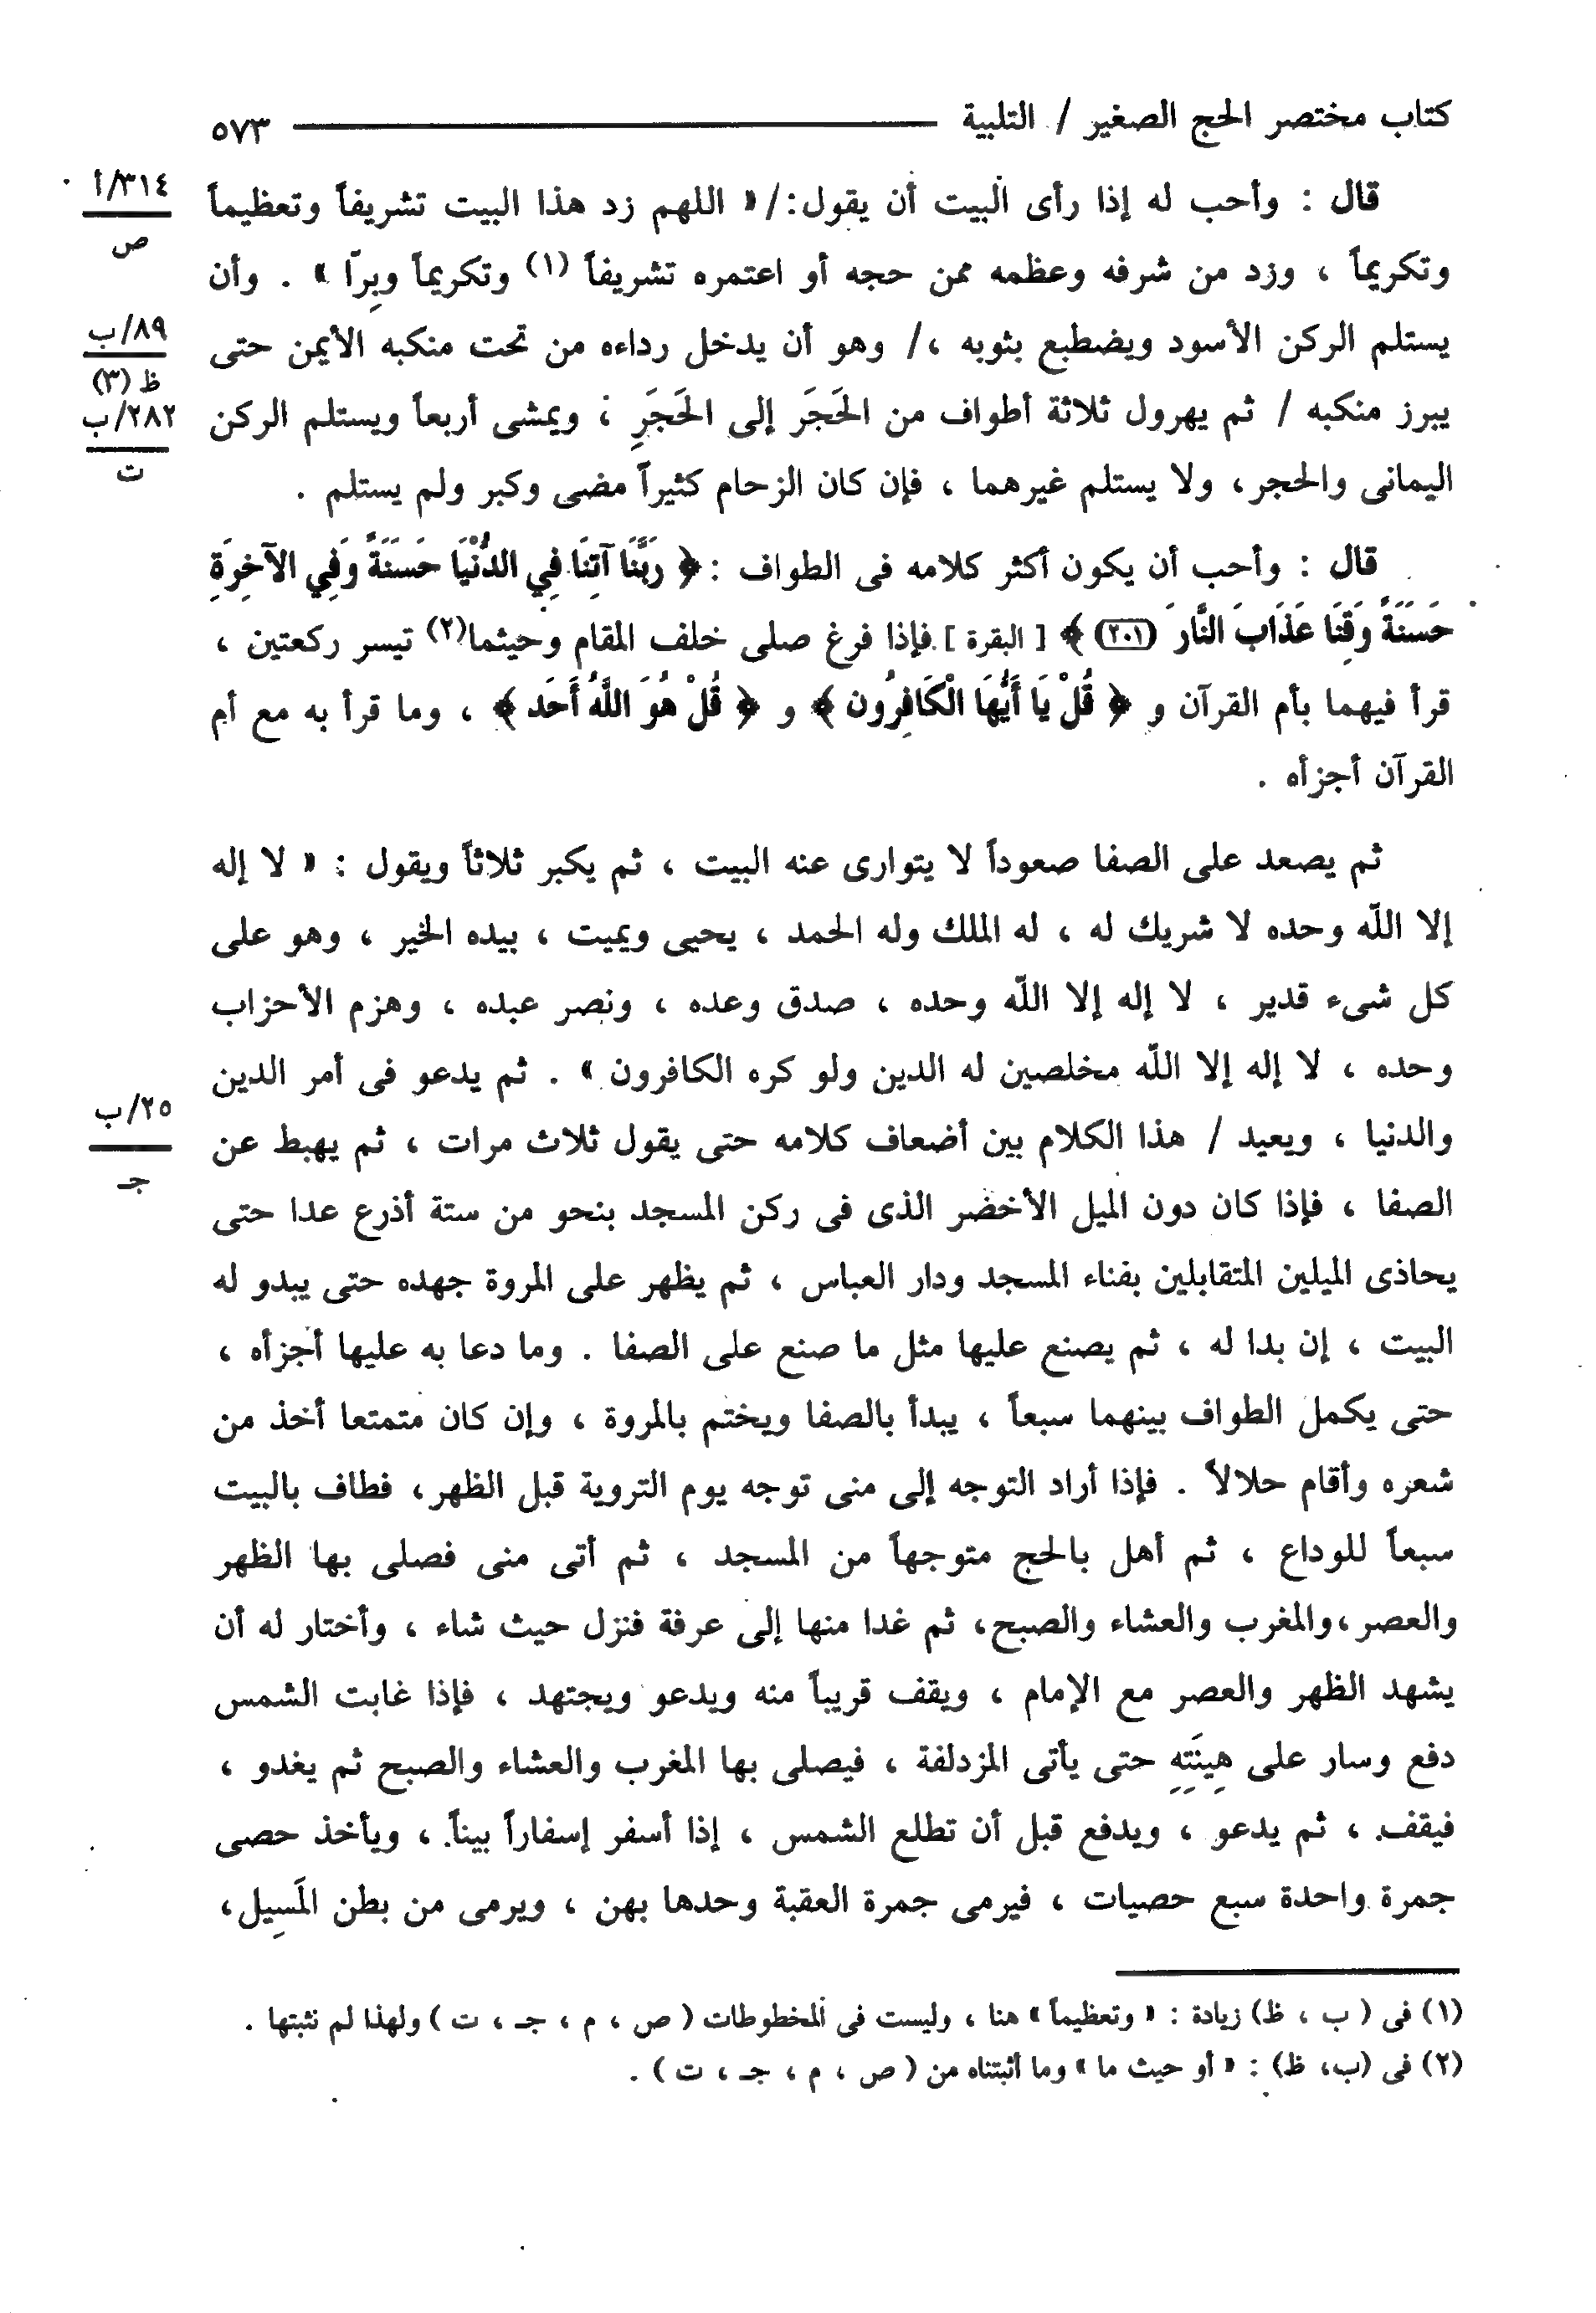 كتاب مختصر الحج الصغير / التلبية ٥٧٣
قال : وأحب له إذا رأى البيت أن يقول:/ « اللهم زد هذا البيت تشريفاً وتعظيماً
٣١٤/أ
ص
وتكريماً ، وزد من شرفه وعظمه ممن حجه أو اعتمره تشريفاً (١) وتكريماً وبِرّا » . وأن
يستلم الركن الأسود ويضطبع بثوبه ،/ وهو أن يدخل رداءه من تحت منكبه الأيمن حتى
٨٩/ب
ظ (٣)
يبرز منكبه / ثم يهرول ثلاثة أطواف من الحَجَر إلى الحَجَرِ ، ويمشى أربعاً ويستلم الركن
٢٨٢/ب
ت
اليمانى والحجر، ولا يستلم غيرهما ، فإن كان الزحام كثيراً مضى وكبر ولم يستلم .
قال : وأحب أن يكون أكثر كلامه فى الطواف : ﴿ رَبَّنَا آتِنَا فِي الدُّنْيَا حَسَنَةً وَفِي الآخِرَةِ
حَسَنَةً وَقِنَا عَذَابَ النَّارَ (٢٠١) ﴾ [ البقرة ] فإذا فرغ صلى خلف المقام وحيثما(٢) تيسر ركعتين ،
قرأ فيهما بأم القرآن و ﴿ قُلْ يَا أَيُّهَا الْكَافِرُون ﴾ و ﴿ قُلْ هُوَ اللَّهُ أَحَد ﴾ ، وما قرأ به مع أم
القرآن أجزأه .
ثم يصعد على الصفا صعوداً لا يتوارى عنه البيت ، ثم يكبر ثلاثاً ويقول : « لا إله
إلا اللّه وحده لا شريك له ، له الملك وله الحمد ، يحيى ويميت ، بيده الخير ، وهو على
كل شىء قدير ، لا إله إلا اللّه وحده ، صدق وعده ، ونصر عبده ، وهزم الأحزاب
وحده ، لا إله إلا اللّه مخلصين له الدين ولو كره الكافرون » . ثم يدعو فى أمر الدين
والدنيا ، ويعيد / هذا الكلام بين أضعاف كلامه حتى يقول ثلاث مرات ، ثم يهبط عن
٢٥/ب
جـ
الصفا ، فإذا كان دون الميل الأخضر الذى فى ركن المسجد بنحو من ستة أذرع عدا حتى
يحاذى الميلين المتقابلين بفناء المسجد ودار العباس ، ثم يظهر على المروة جهده حتى يبدو له
البيت ، إن بدا له ، ثم يصنع عليها مثل ما صنع على الصفا . وما دعا به عليها أجزأه ،
حتى يكمل الطواف بينهما سبعاً ، يبدأ بالصفا ويختم بالمروة ، وإن كان متمتعا أخذ من
شعره وأقام حلالاً . فإذا أراد التوجه إلى منى توجه يوم التروية قبل الظهر، فطاف بالبيت
سبعاً للوداع ، ثم أهل بالحج متوجهاً من المسجد ، ثم أتى منى فصلى بها الظهر
والعصر،والمغرب والعشاء والصبح، ثم غدا منها إلى عرفة فنزل حيث شاء ، وأختار له أن
يشهد الظهر والعصر مع الإمام ، ويقف قريباً منه ويدعو ويجتهد ، فإذا غابت الشمس
دفع وسار على هِينَتِهِ حتى يأتى المزدلفة ، فيصلى بها المغرب والعشاء والصبح ثم يغدو ،
فيقف ، ثم يدعو ، ويدفع قبل أن تطلع الشمس ، إذا أسفر إسفاراً بيناً ، ويأخذ حصى
جمرة واحدة سبع حصيات ، فيرمى جمرة العقبة وحدها بهن ، ويرمى من بطن المَسِيل،
(١) فى ( ب ، ظ) زيادة : « وتعظيماً » هنا ، وليست فى المخطوطات ( ص ، م ، جـ ، ت ) ولهذا لم نثبتها .
(٢) فى (ب، ظ) : « أو حيث ما » وما أثبتناه من ( ص ، م ، جـ ، ت ) .